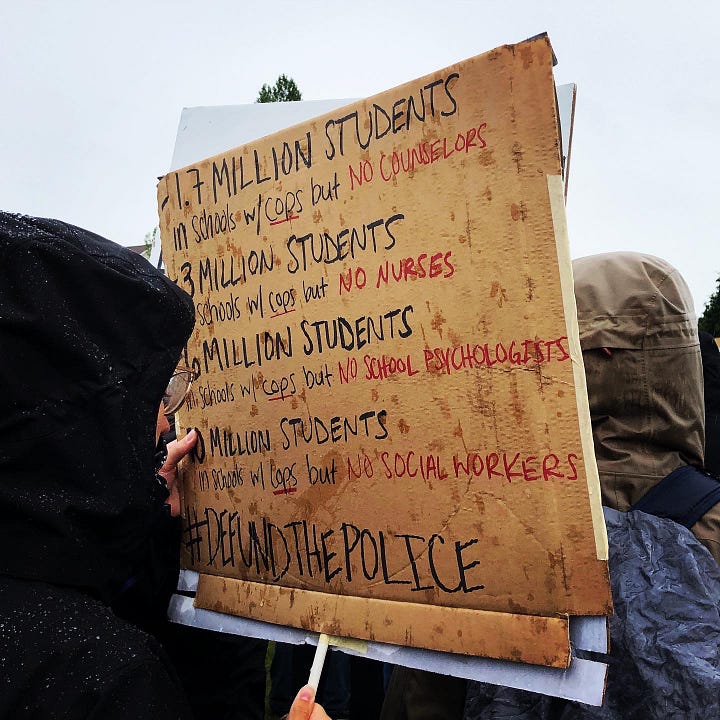 - 1.7 MILLION STUDENTS
in schools w/ cops but NO COUNSELORS
3 MILLION STUDENTS
schools w/ cops but NO NURSES
MILLION STUDENTS
in schools w/ cops but NO SCHOOL PSYCHOLOGISTS
MILLION STUDENTS
in schools w/ cops but NO SOCIAL WORKERS
#DEFUNDTHEPOLICE